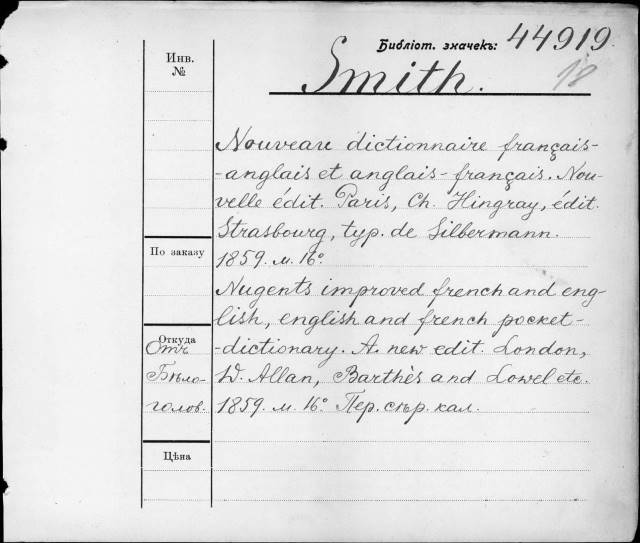 Библіот. значекъ: 44919
18
Smith.
Инв.
№
Nouveau dictionnaire français-
-anglais et anglais-français. Nou-
velle édit. Paris, Ch. Hingray, édit.
Strasbourg, typ. de Silbermann.
По заказу
1859. м. 16°
Nugents improved french and eng-
lish, english and french pocket-
Откуда
Отъ
-dictionary. A new edit. London,
Бѣло-
W. Allan, Barthès and Lowel etc.
голов.
1859. м. 16° Пер. сѣр. кал.
Цѣна